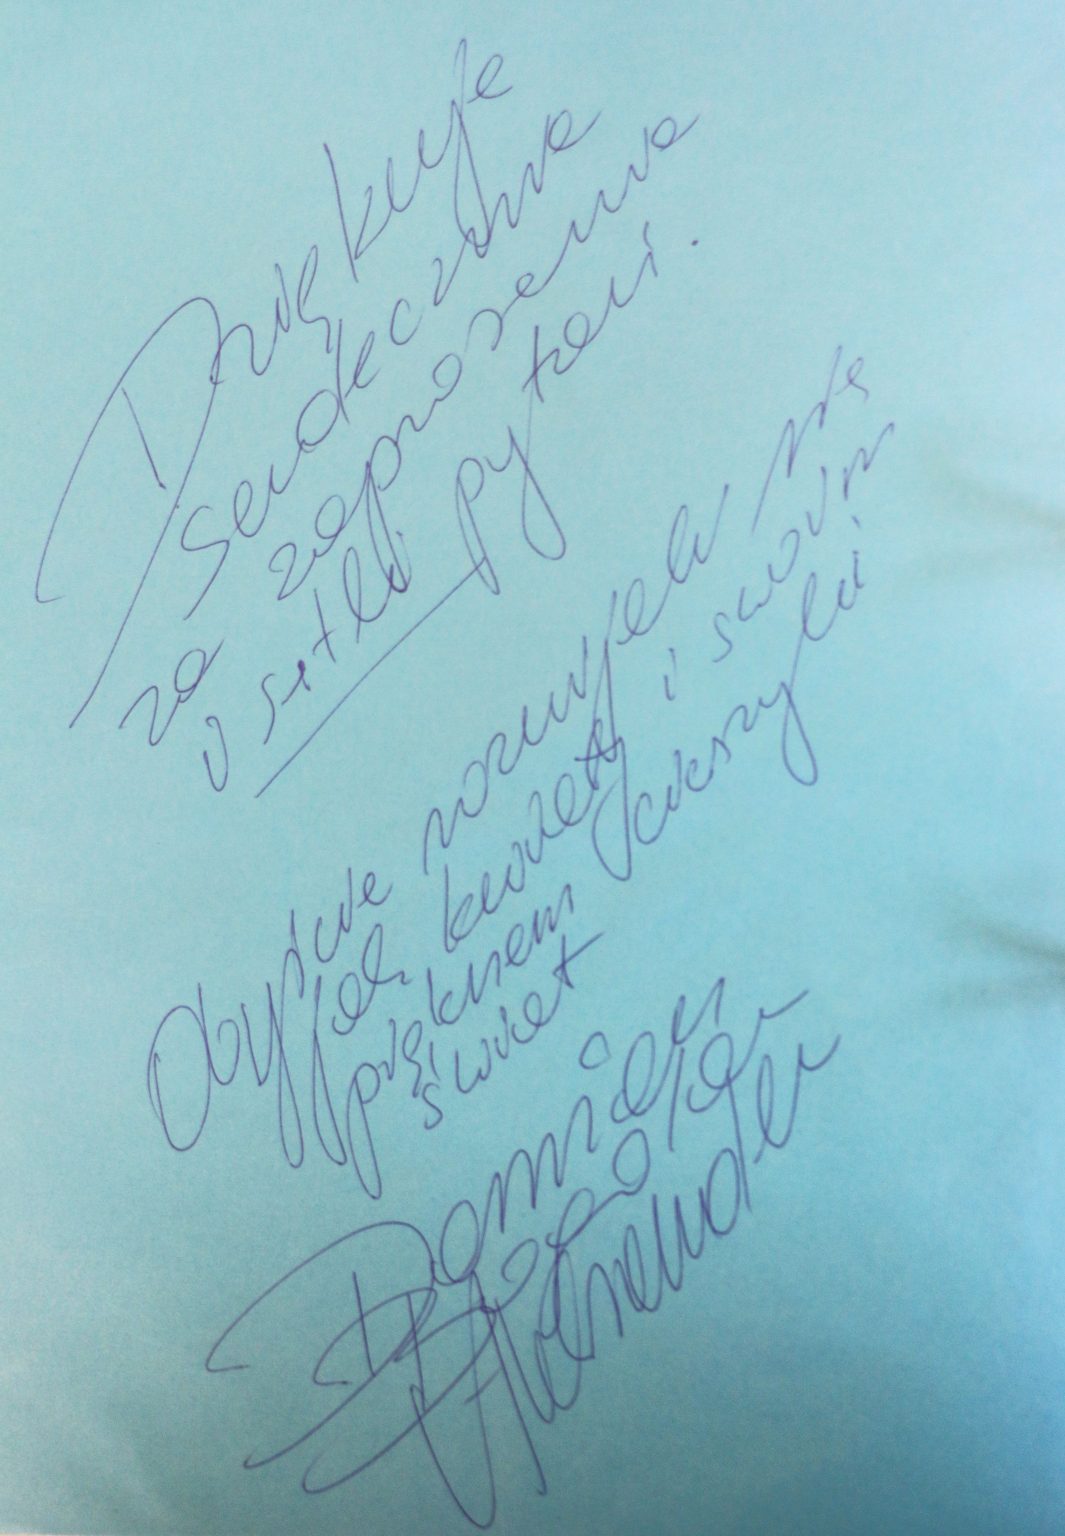 Dziękuję
serdecznie
za zaproszenie
i setki pytań.
Abyście rozwijali się
jak kwiaty i swoim
pięknem upiększyli
świat
Damian